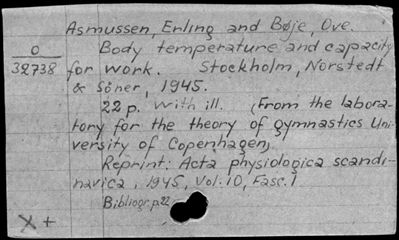 Asmussen, Erling and Bøje, Ove.
O
Body temperature and capacity
32738
for work. Stockholm, Norstedt
& söner, 1945.
22 p. with ill. (From the labora-
tory for the theory of gymnastics Uni-
versity of Copenhagen)
Reprint: Acta physiologica scandi-
navica, 1945, Vol. 10, Fasc. 1
Bibliogr. p. 22
X +